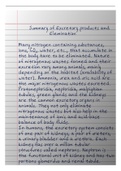 Summary of Excretory products and
Elimination
Many nitrogen containing substances,
ions, CO2, water, etc., that accumulate in
the body have to be eliminated. Nature
of nitrogenous wastes formed and their
excretion vary among animals, mainly
depending on the habitat (availability of
water). Ammonia, urea and uric acid are
the major nitrogenous wastes excreted.
Protonephridia, nephridia, malpighian
tubules, green glands and the kidneys
are the common excretory organs in
animals. They not only eliminate
nitrogenous wastes but also help in the
maintenance of ionic and acid-base
balance of body fluids.
In humans, the excretory system consists
of one pair of kidneys, a pair of ureters,
a urinary bladder and a urethra. Each
kidney has over a million tubular
structures called nephrons. Nephron is
the functional unit of kidney and has two
portions glomerulus and renal tubule.